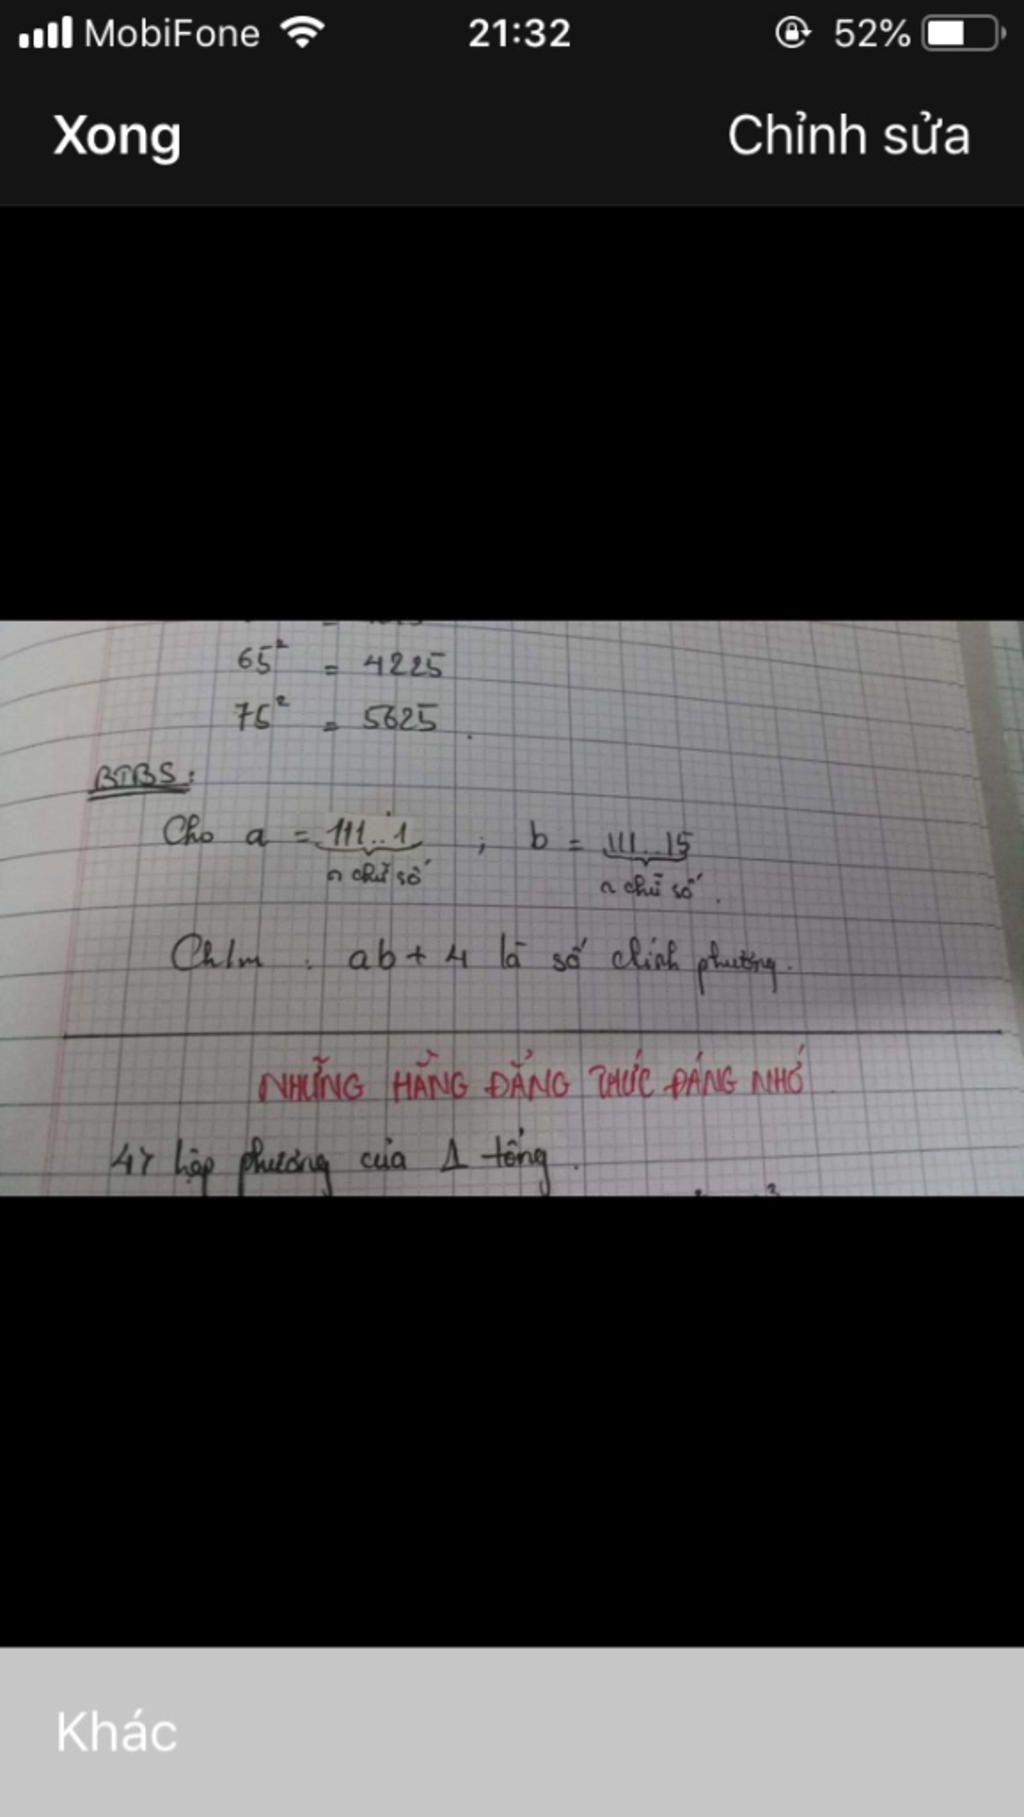 MobiFone 21:32 52%
Xong Chỉnh sửa
65² = 4225
75² = 5625.
BTBS:
Cho a = 111...1 ; b = 111...15
n chữ số n chữ số.
Ch/m : ab + 4 là số chính phương.
NHỮNG HẰNG ĐẲNG THỨC ĐÁNG NHỚ
4, lập phương của 1 tổng.
Khác